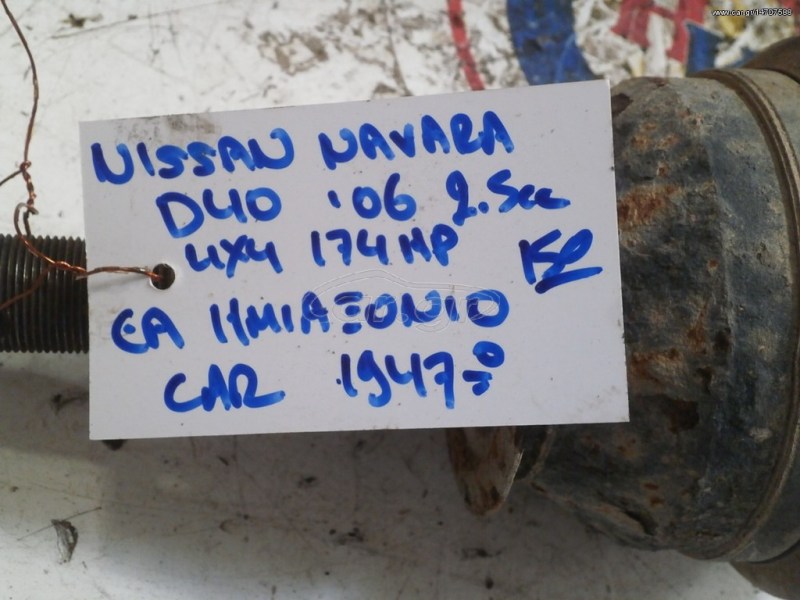 www.car.gr/14707588
NISSAN NAVARA
D40 '06 2.5cc
4X4 174HP
ΕΑ ΗΜΙΑΞΟΝΙΟ
CAR 1947